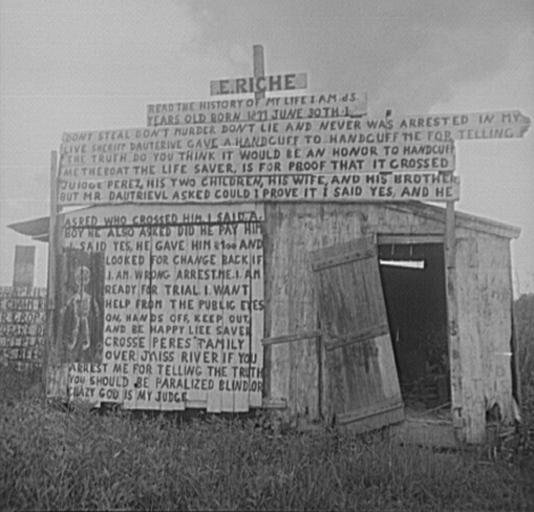 E.RICHE
READ THE HISTORY OF MY LIFE I.AM
YEARS OLD BORN 1877 JUNE 30TH I
DONT STEAL DON'T MURDER DON'T LIE AND NEVER WAS ARRESTED IN MY
LIVE SHERIFF DAUTERIVE GAVE A HANDCUFF TO HANDCUFF ME FOR TELLING
THE TRUTH DO YOU THINK IT WOULD BE AN HONOR TO HANDCUFF
ME THE BOAT THE LIFE SAVER, IS FOR PROOF THAT IT CROSSED
JUIDGE PEREZ, HIS TWO CHILDREN, HIS WIFE, AND HIS BROTHER
BUT MR. DAUTRIEVL ASKED COULD I PROVE IT I SAID YES, AND HE
ASRED WHO CROSSED HIM I SAID A
BOY HE ALSO ASKED DID HE PAY HIM
I SAID YES, HE GAVE HIM AND
LOOKED FOR CHANGE BACK.IF
I.AM. WRONG ARREST.ME.I.AM
READY FOR TRIAL I.WANT
HELP FROM THE PUBLIC EYES
ON, HANDS OFF, KEEP OUT,
AND BE HAPPY LIEE SAVER
CROSSE PERES'FAMILY
OVER RIVER IF YOU
ARREST ME FOR TELLING THE TRUTH
YOU SHOULD BE PARALIZED BLIND.OR
CRAZY GOD IS MY JUDGE